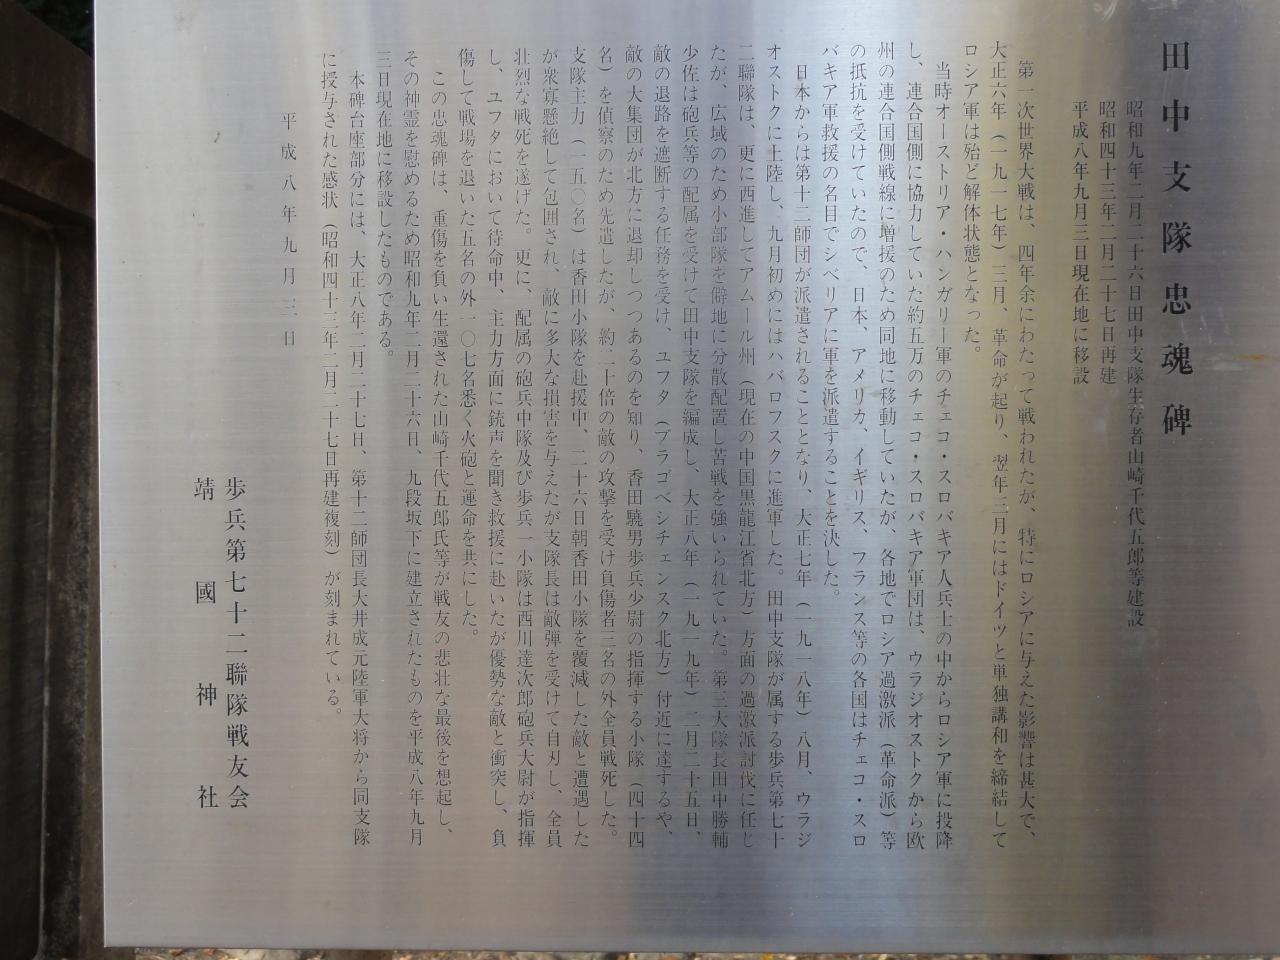 田中支隊忠魂碑
昭和九年二月二十六日田中支隊生存者山崎千代五郎等建設
昭和四十三年二月二十七日再建
平成八年九月三日現在地に移設
第一次世界大戦は、四年余にわたって戦われたが、特にロシアに与えた影響は甚大で、
大正六年（一九一七年）三月、革命が起り、翌年三月にはドイツと単独講和を締結して
ロシア軍は殆ど解体状態となった。
当時オーストリア・ハンガリー軍のチェコ・スロバキア人兵士の中からロシア軍に投降
し、連合国側に協力していた約五万のチェコ・スロバキア軍団は、ウラジオストクから欧
州の連合国側戦線に増援のため同地に移動していたが、各地でロシア過激派（革命派）等
の抵抗を受けていたので、日本、アメリカ、イギリス、フランス等の各国はチェコ・スロ
バキア軍救援の名目でシベリアに軍を派遣することを決した。
日本からは第十二師団が派遣されることとなり、大正七年（一九一八年）八月、ウラジ
オストクに上陸し、九月初めにはハバロフスクに進軍した。田中支隊が属する歩兵第七十
二聯隊は、更に西進してアムール州（現在の中国黒龍江省北方）方面の過激派討伐に任じ
たが、広域のため小部隊を僻地に分散配置し苦戦を強いられていた。第三大隊長田中勝輔
少佐は砲兵等の配属を受けて田中支隊を編成し、大正八年（一九一九年）二月二十五日、
敵の退路を遮断する任務を受け、ユフタ（ブラゴベシチェンスク北方）付近に達するや、
敵の大集団が北方に退却しつつあるのを知り、香田驍男歩兵少尉の指揮する小隊（四十四
名）を偵察のため先遣したが、約二十倍の敵の攻撃を受け負傷者三名の外全員戦死した。
支隊主力（一五〇名）は香田小隊を赴援中、二十六日朝香田小隊を覆滅した敵と遭遇した
が衆寡懸絶して包囲され、敵に多大な損害を与えたが支隊長は敵弾を受けて自刃し、全員
壮烈な戦死を遂げた。更に、配属の砲兵中隊及び歩兵一小隊は西川達次郎砲兵大尉が指揮
し、ユフタにおいて待命中、主力方面に銃声を聞き救援に赴いたが優勢な敵と衝突し、負
傷して戦場を退いた五名の外一〇七名悉く火砲と運命を共にした。
この忠魂碑は、重傷を負い生還された山崎千代五郎氏等が戦友の悲壮な最後を想起し、
その神霊を慰めるため昭和九年二月二十六日、九段坂下に建立されたものを平成八年九月
三日現在地に移設したものである。
本碑台座部分には、大正八年二月二十七日、第十二師団長大井成元陸軍大将から同支隊
に授与された感状（昭和四十三年二月二十七日再建複刻）が刻まれている。
平成八年九月三日
歩兵第七十二聯隊戦友会
靖國神社